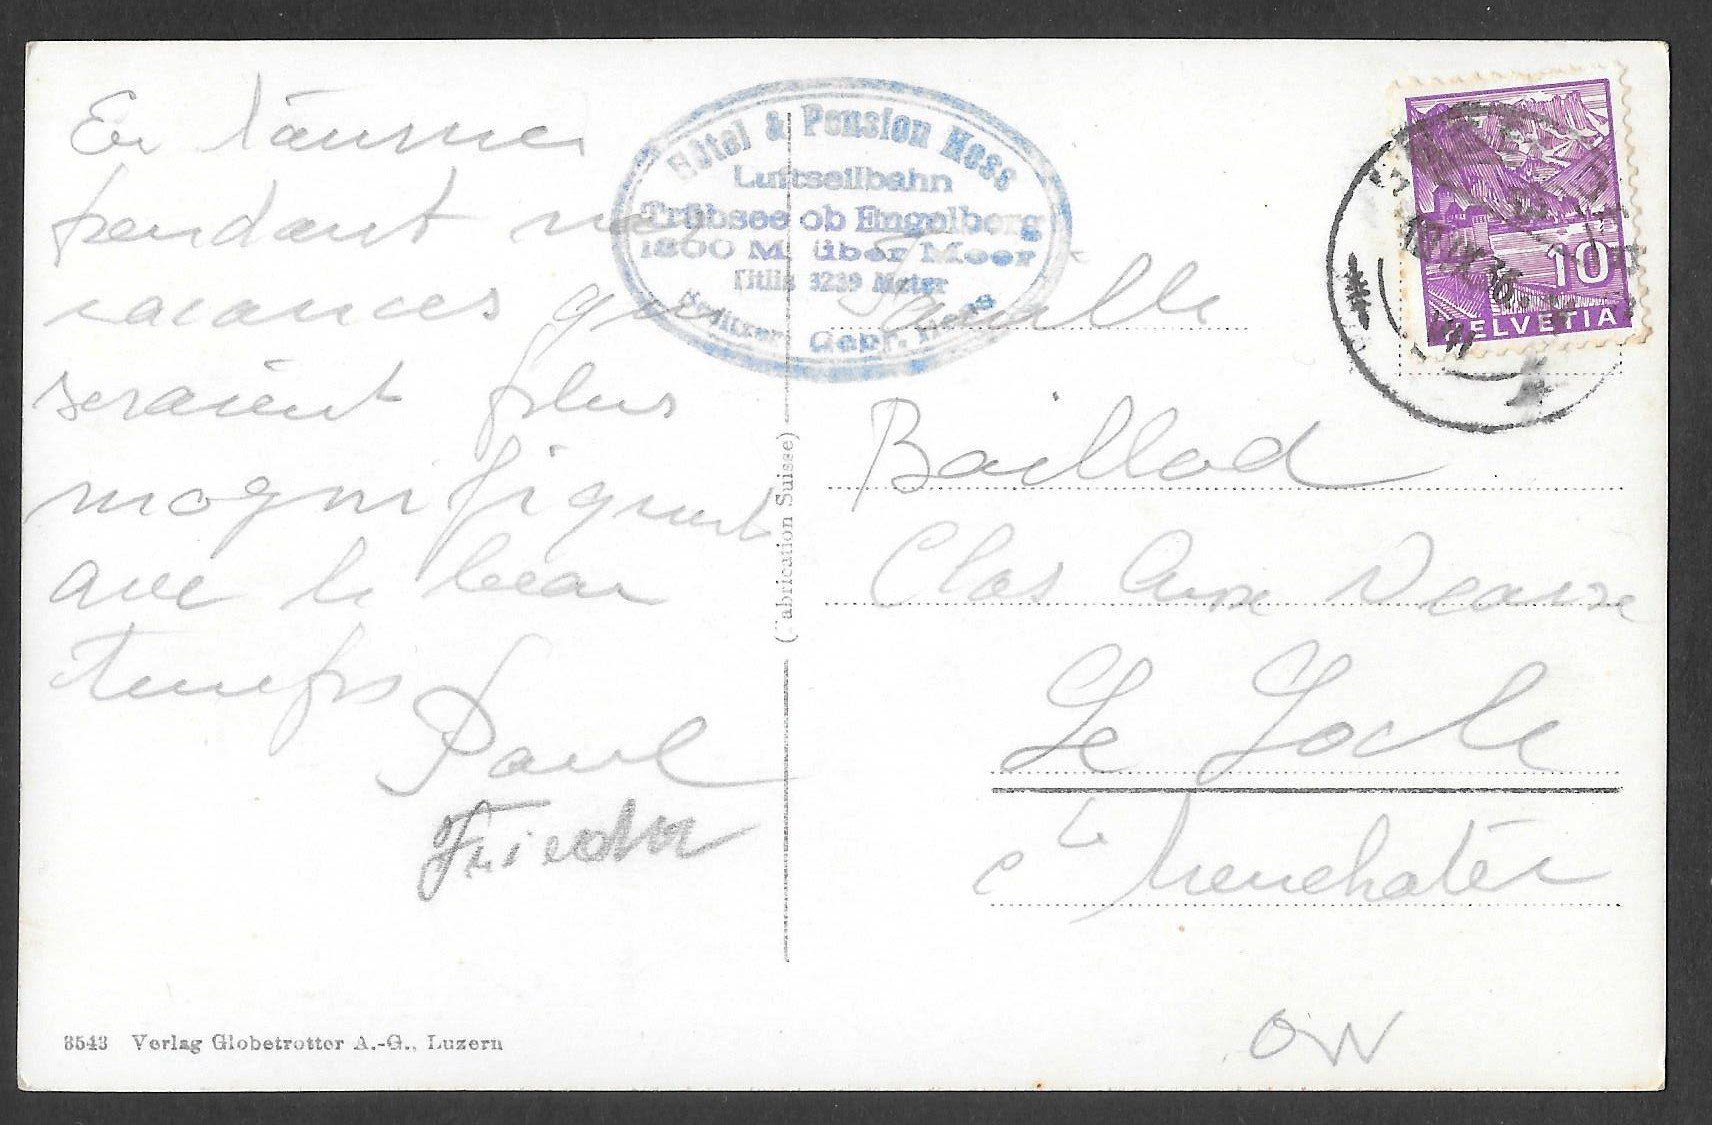 En
pendant nos
vacances qui
seraient plus
magnifiques
avec le beau
temps
Paul
Friedr
3543 Verlag Globetrotter A.-G., Luzern
(Fabrication Suisse)
Hôtel & Pension Hess
Luftseilbahn
Trübsee ob Engelberg
1800 M. über Meer
Titlis 3239 Meter
Besitzer: Gebr. Hess
10
HELVETIA
Famille
Baillod
Clos
Le Locle
Neuchatel
OW